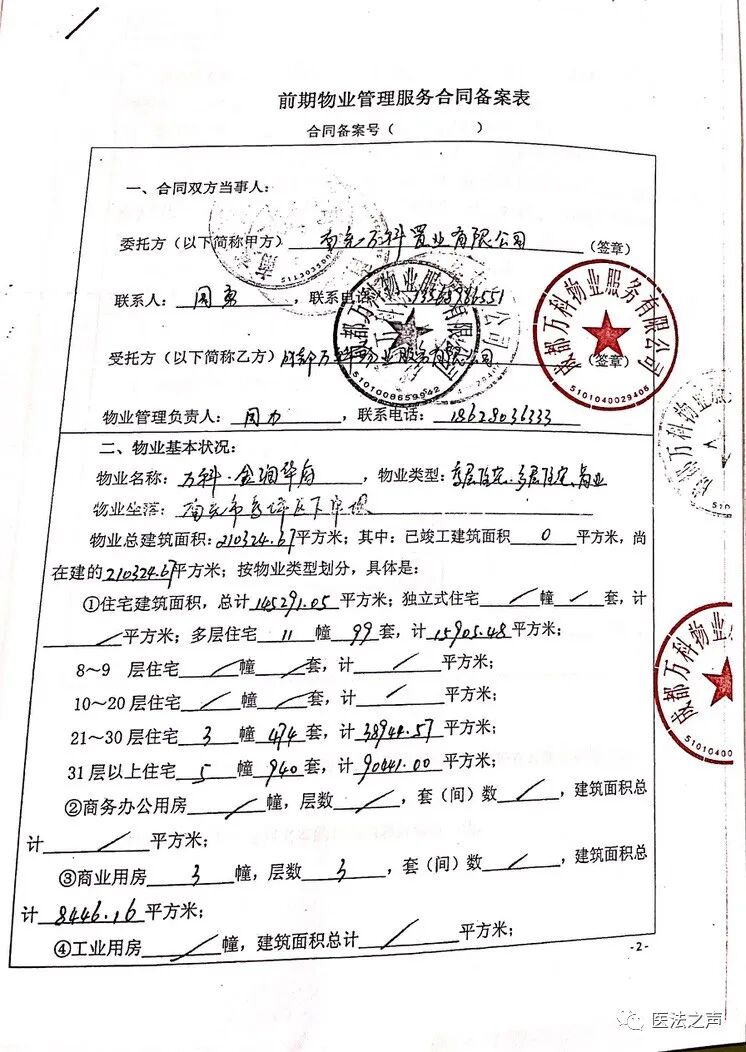 前期物业管理服务合同备案表
合同备案号（ ）
一、合同双方当事人：
委托方（以下简称甲方）南充万科置业有限公司（签章）
联系人：周 ，联系电话：
受托方（以下简称乙方）成都万科物业服务有限公司（签章）
物业管理负责人：周力，联系电话：18628036333
成都万科物业服务有限公司
5101008659942
成都万科物业服务有限公司
5101040029406
二、物业基本状况：
物业名称：万科·金润华府，物业类型：高层住宅、多层住宅、商业
物业坐落：南充市高坪区下中坝
物业总建筑面积：210324.67平方米；其中：已竣工建筑面积0平方米，尚
在建的210324.67平方米；按物业类型划分，具体是：
①住宅建筑面积，总计145291.05平方米；独立式住宅／幢／套，计
／平方米；多层住宅11幢99套，计15905.48平方米；
8～9 层住宅／幢／套，计／平方米；
10～20 层住宅／幢／套，计／平方米；
21～30 层住宅3幢474套，计38944.57平方米；
31 层以上住宅5幢940套，计90441.00平方米；
②商务办公用房／幢，层数／，套（间）数／，建筑面积总
计／平方米；
③商业用房3幢，层数3，套（间）数／，建筑面积总
计8446.16平方米；
④工业用房／幢，建筑面积总计／平方米；
-2-
成都万科物业服
51010400
医法之声